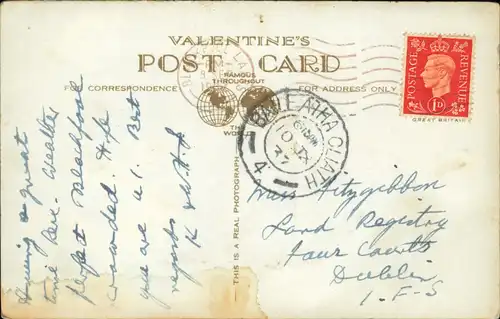 VALENTINE'S
POST CARD
FAMOUS
THROUGHOUT
THE
WORLD
FOR CORRESPONDENCE
FOR ADDRESS ONLY
POSTAGE
REVENUE
1D
GREAT BRITAIN
BAILE ÁTHA CLIATH
37
4
THIS IS A REAL PHOTOGRAPH
Having a great
time here. Weather
perfect Blackpool
crowded. Hope
you are A1. Best
regards
Miss Fitzgibbon
Land Registry
Four Courts
Dublin
I-F-S